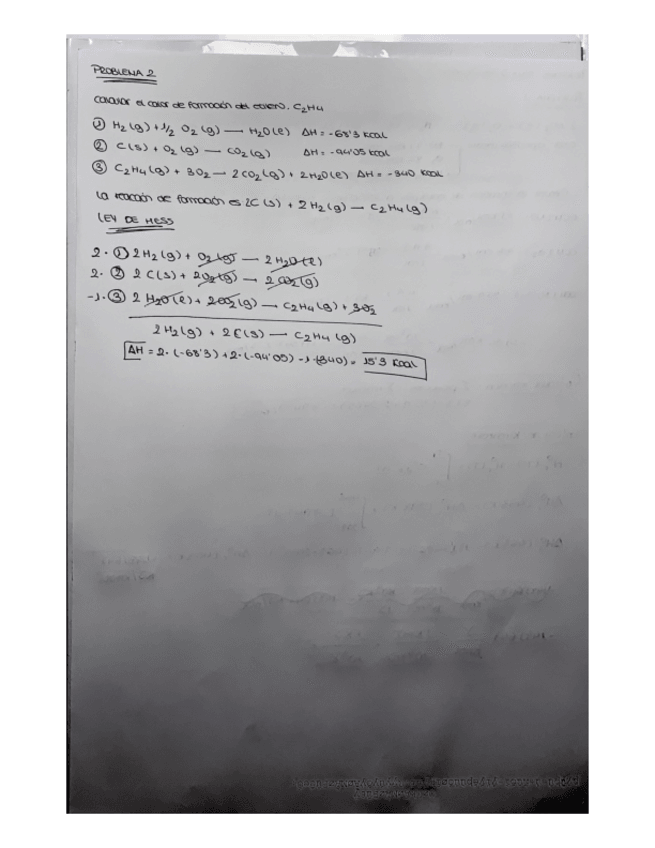 PROBLEMA 2
Calcular el calor de formación del eteno. C₂H₄
① H₂(g) + 1/2 O₂(g) — H₂O(l) ΔH = -68'3 Kcal
② C(s) + O₂(g) — CO₂(g) ΔH = -94'05 Kcal
③ C₂H₄(g) + 3O₂ — 2CO₂(g) + 2H₂O(l) ΔH = -340 Kcal
La reacción de formación es 2C(s) + 2H₂(g) — C₂H₄(g)
LEY DE HESS
2· ① 2H₂(g) + O₂(g) — 2H₂O(l)
2· ② 2C(s) + 2O₂(g) — 2CO₂(g)
-1· ③ 2H₂O(l) + 2CO₂(g) — C₂H₄(g) + 3O₂
2H₂(g) + 2C(s) — C₂H₄(g)
ΔH = 2·(-68'3) + 2·(-94'05) -1·(340) = 15'3 Kcal